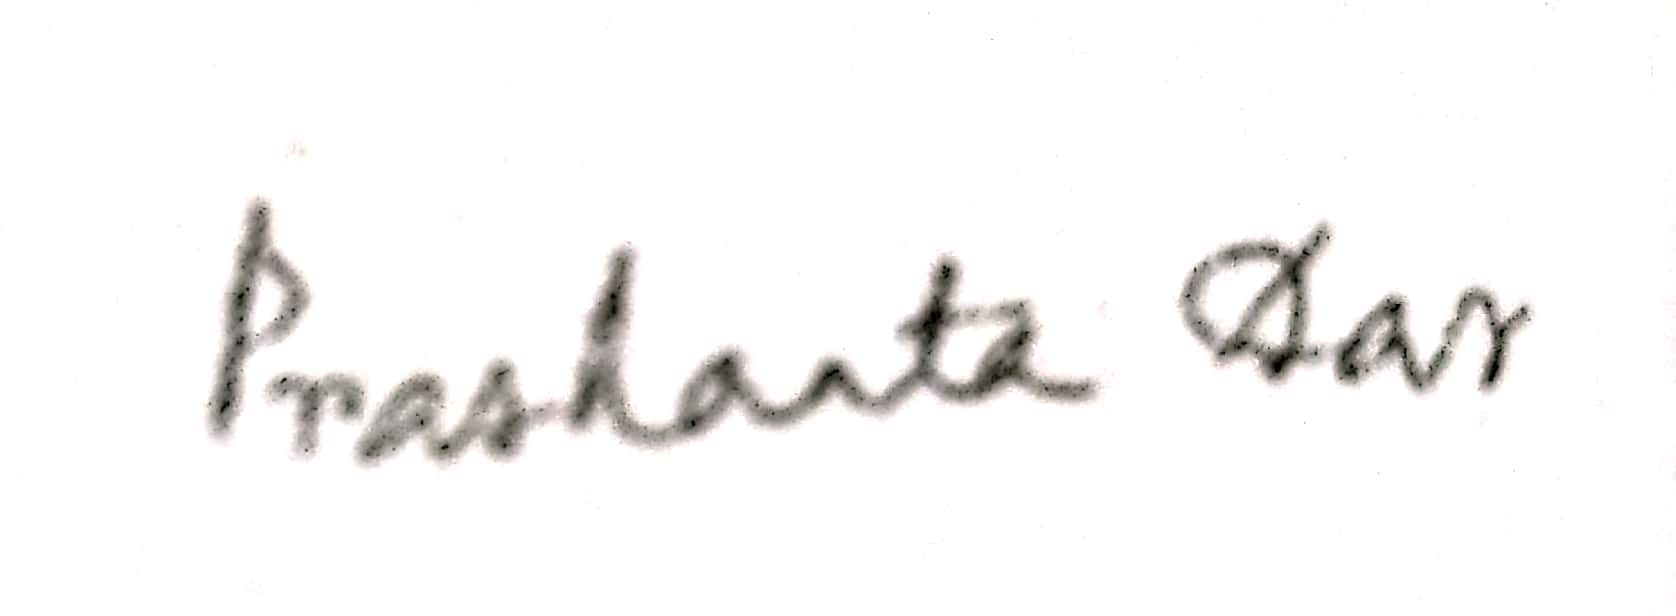 Prashanta Das